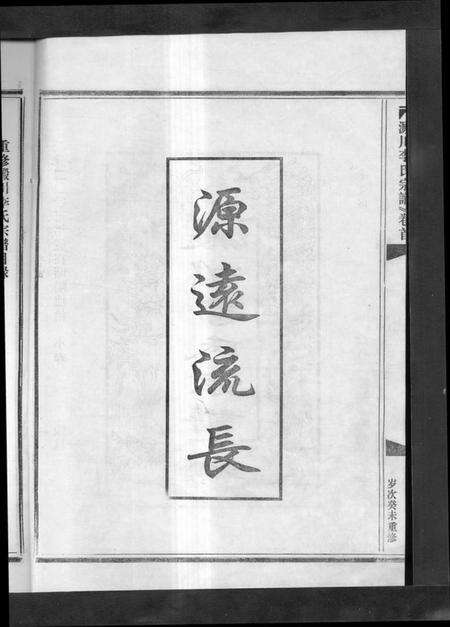 源遠流長
李氏宗譜 卷首
岁次癸未重修
重修
川李氏宗譜目録